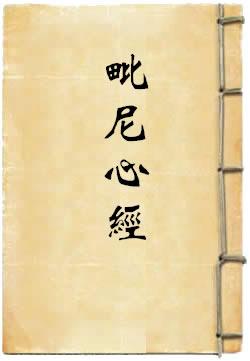 毗尼心經